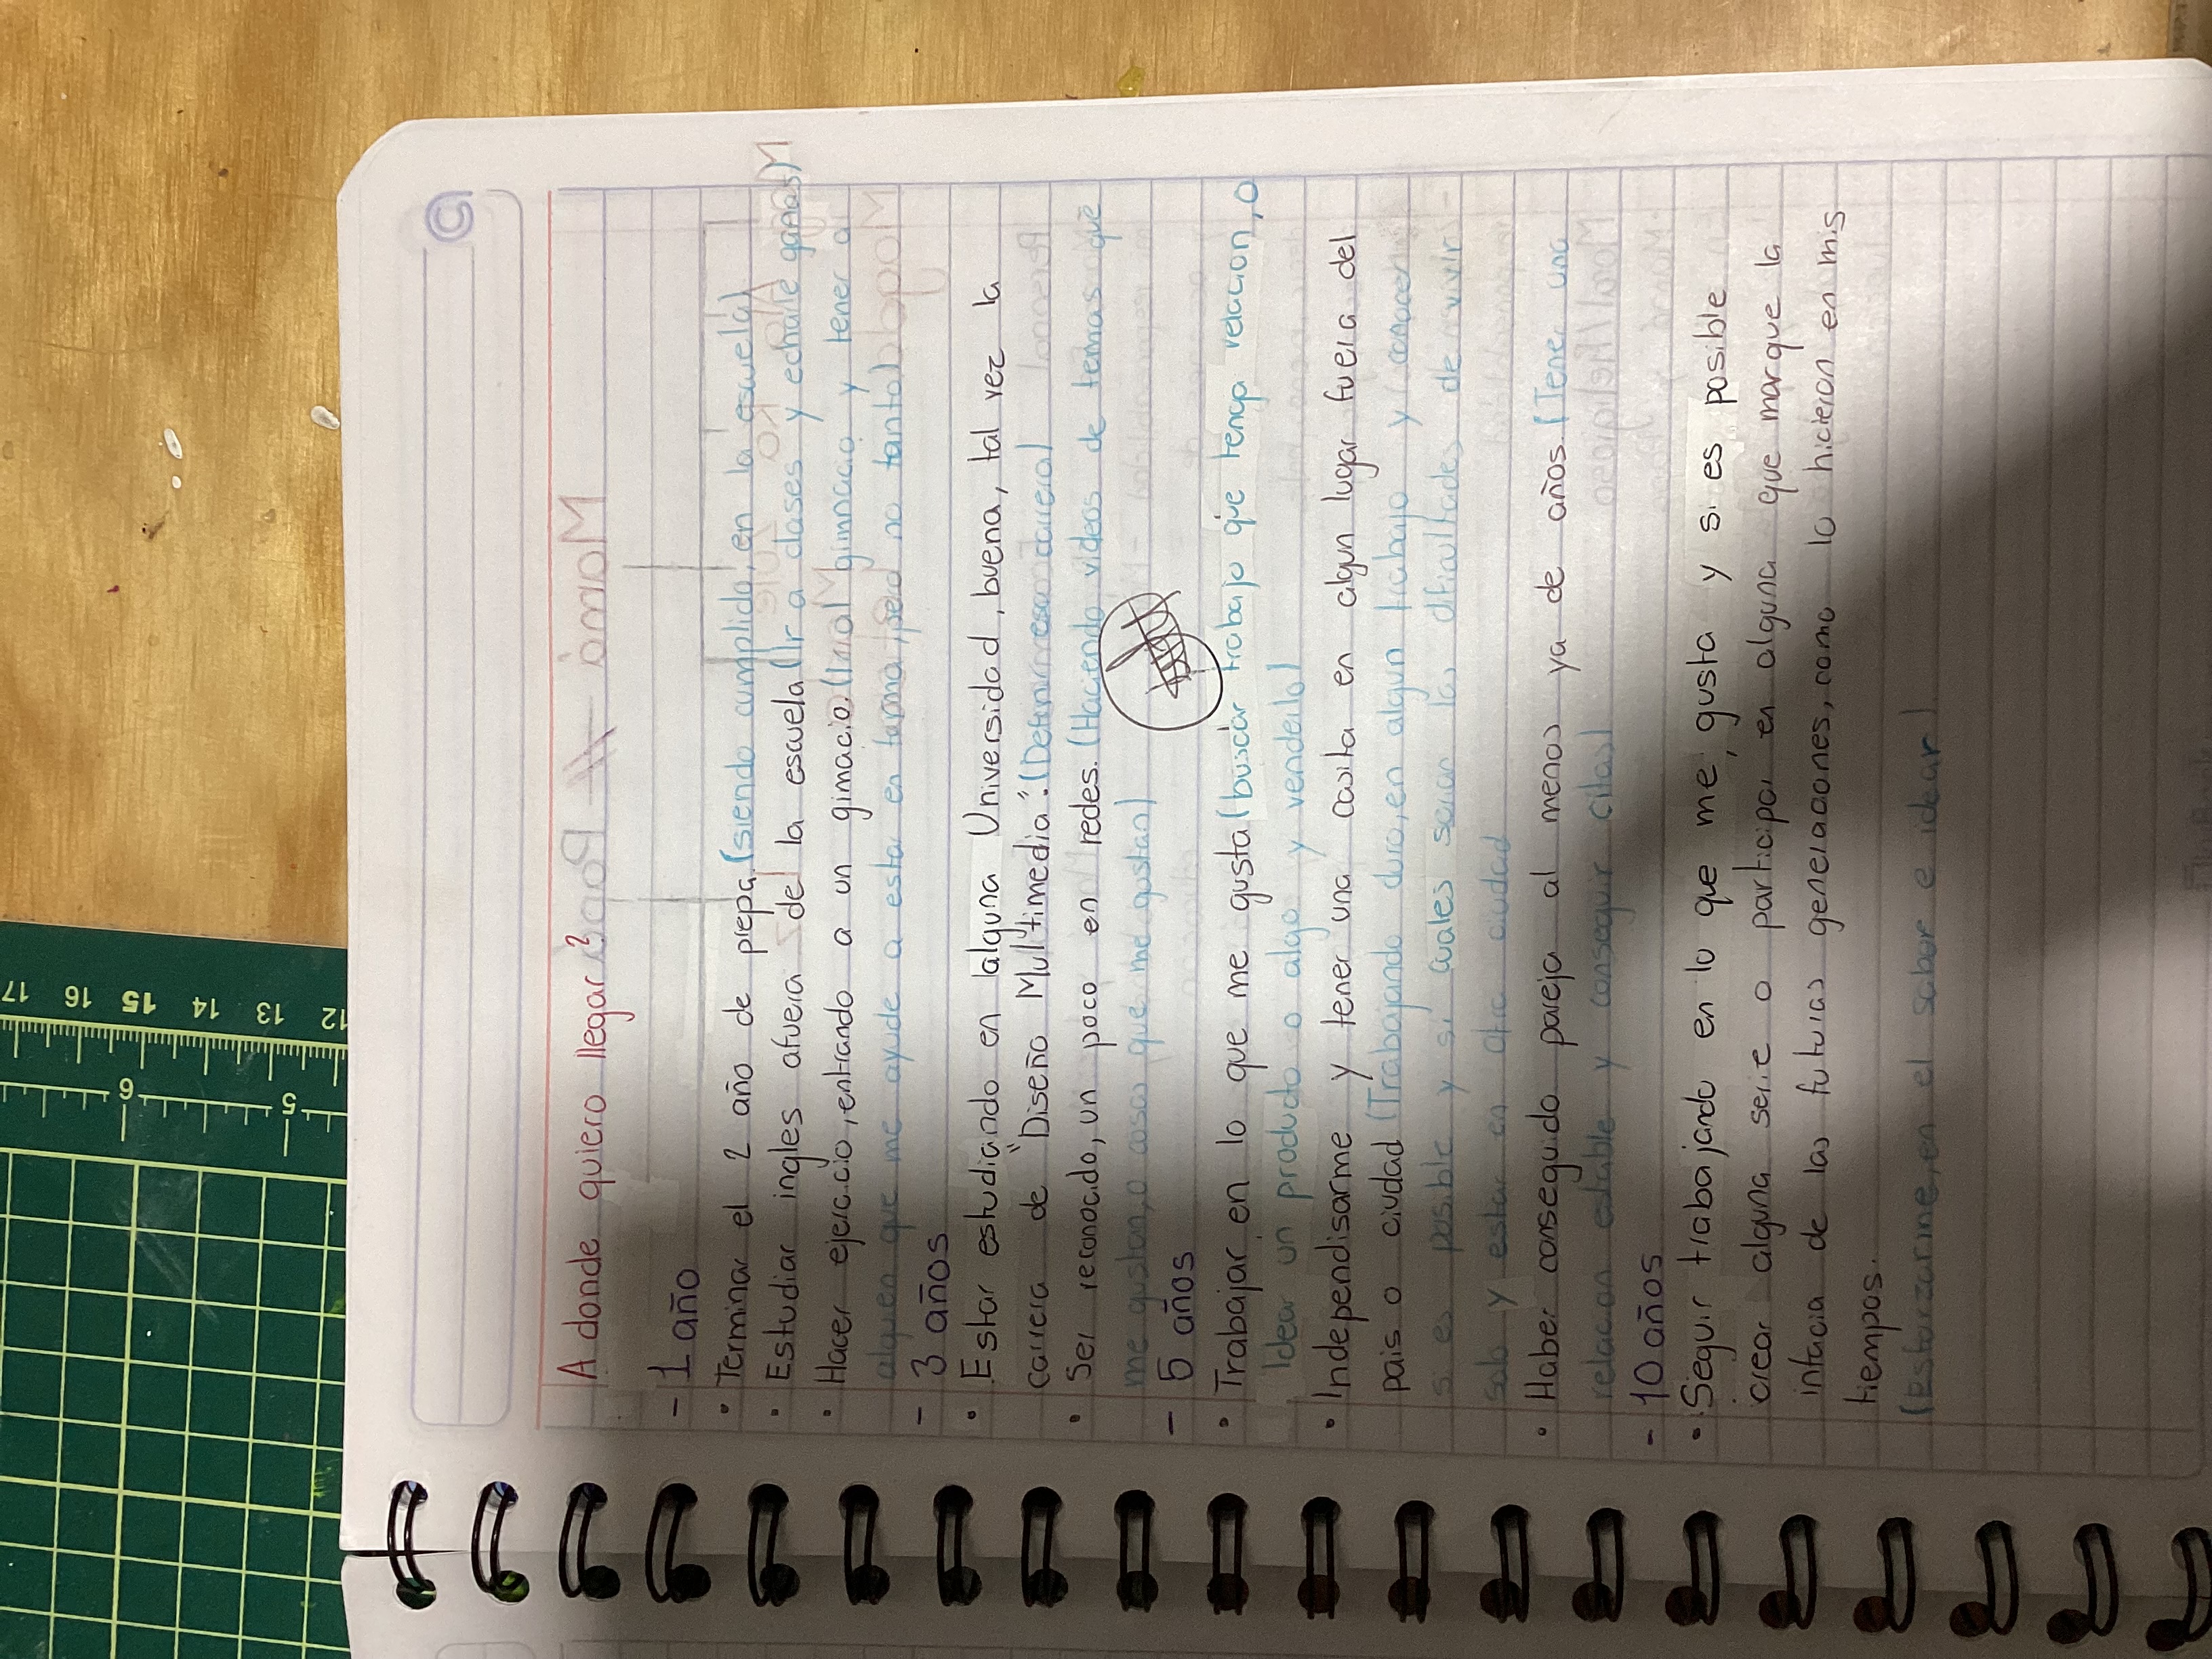 A donde quiero llegar?
- 1 año
• Terminar el 2 año de prepa. (siendo cumplido, en la escuela)
• Estudiar ingles afuera de la escuela (Ir a clases y echarle ganas)
• Hacer ejercicio, entrando a un gimnacio. (Ir al gimnacio y tener a
alguien que me ayude a estar en forma, pero no tanto)
- 3 años
• Estar estudiando en alguna Universidad, buena, tal vez la
carrera de "Diseño Multimedia". (Definirme esa carrera)
• Ser reconocido, un poco en redes. (Haciendo videos de temas que
me gustan, o cosas que me gustan)
- 5 años
• Trabajar en lo que me gusta (buscar trabajo que tenga relacion, o
Idear un producto o algo y venderlo)
• Independisarme y tener una casita en algun lugar fuera del
pais o ciudad (Trabajando duro, en algun trabajo y conocer
si es posible y si cuales serian las dificultades de vivir
solo y estar en otra ciudad
• Haber conseguido pareja al menos ya de años. (Tener una
relacion estable y conseguir citas)
- 10 años
• Seguir trabajando en lo que me, gusta y si es posible
crear alguna serie o participar en alguna que marque la
infacia de las futuras generaciones, como lo hicieron en mis
tiempos.
(Esforzarme, en el saber e idear)
17 16 15 14 13 12
6 5